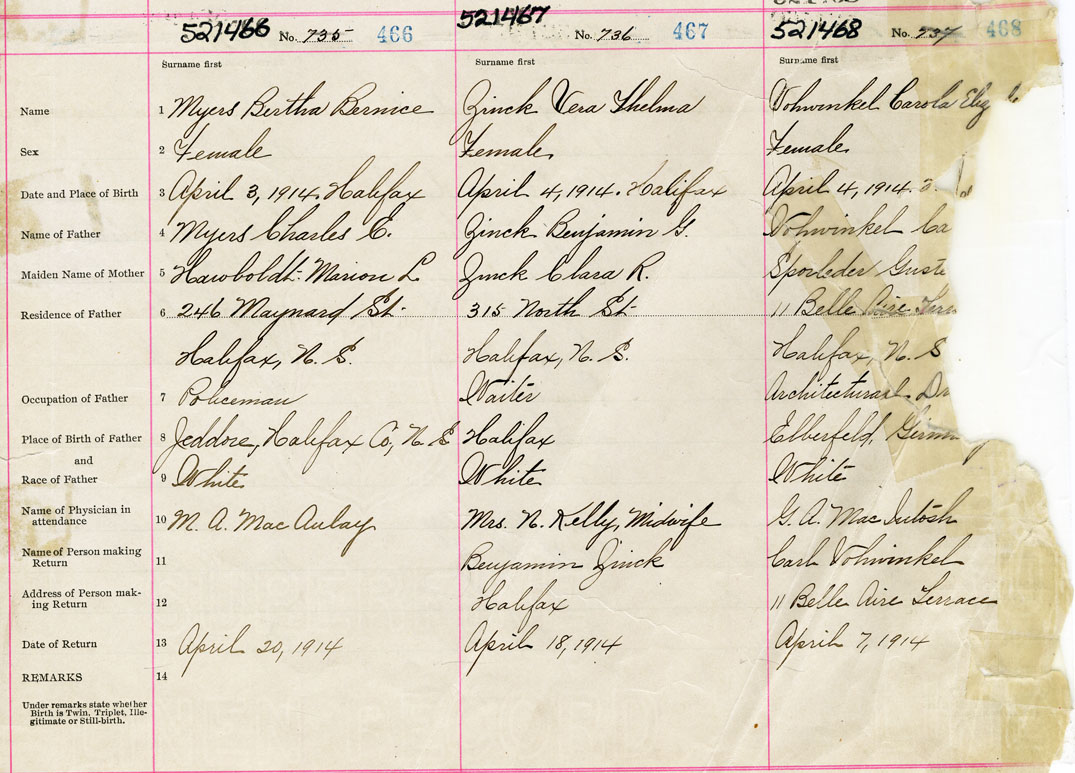 521466 No. 735 466
521467 No. 736 467
521468 No. 737 468
Surname first Surname first Surname first
Name 1 Myers Bertha Bernice Zinck Vera Thelma Vohwinkel Carola Eliz
Sex 2 Female Female Female
Date and Place of Birth 3 April 3, 1914. Halifax April 4, 1914. Halifax April 4, 1914.
Name of Father 4 Myers Charles E. Zinck Benjamin G. Vohwinkel Ca
Maiden Name of Mother 5 Hawboldt Marion L Zinck Clara R. Sporleder Guste
Residence of Father 6 246 Maynard St. 315 North St. 11 Belle Aire Terr
Halifax, N. S. Halifax, N. S. Halifax, N. S
Occupation of Father 7 Policeman Waiter Architectural Dr
Place of Birth of Father 8 Jeddore, Halifax Co, N. S Halifax Elberfeld, Germ
and
Race of Father 9 White White White
Name of Physician in
attendance 10 M. A. MacAulay Mrs. N. Kelly, Midwife G. A. MacIntosh
Name of Person making
Return 11 Benjamin Zinck Carl Vohwinkel
Address of Person mak-
ing Return 12 Halifax 11 Belle Aire Terrace
Date of Return 13 April 20, 1914 April 18, 1914 April 7, 1914
REMARKS 14
Under remarks state whether
Birth is Twin, Triplet, Ille-
gitimate or Still-birth.